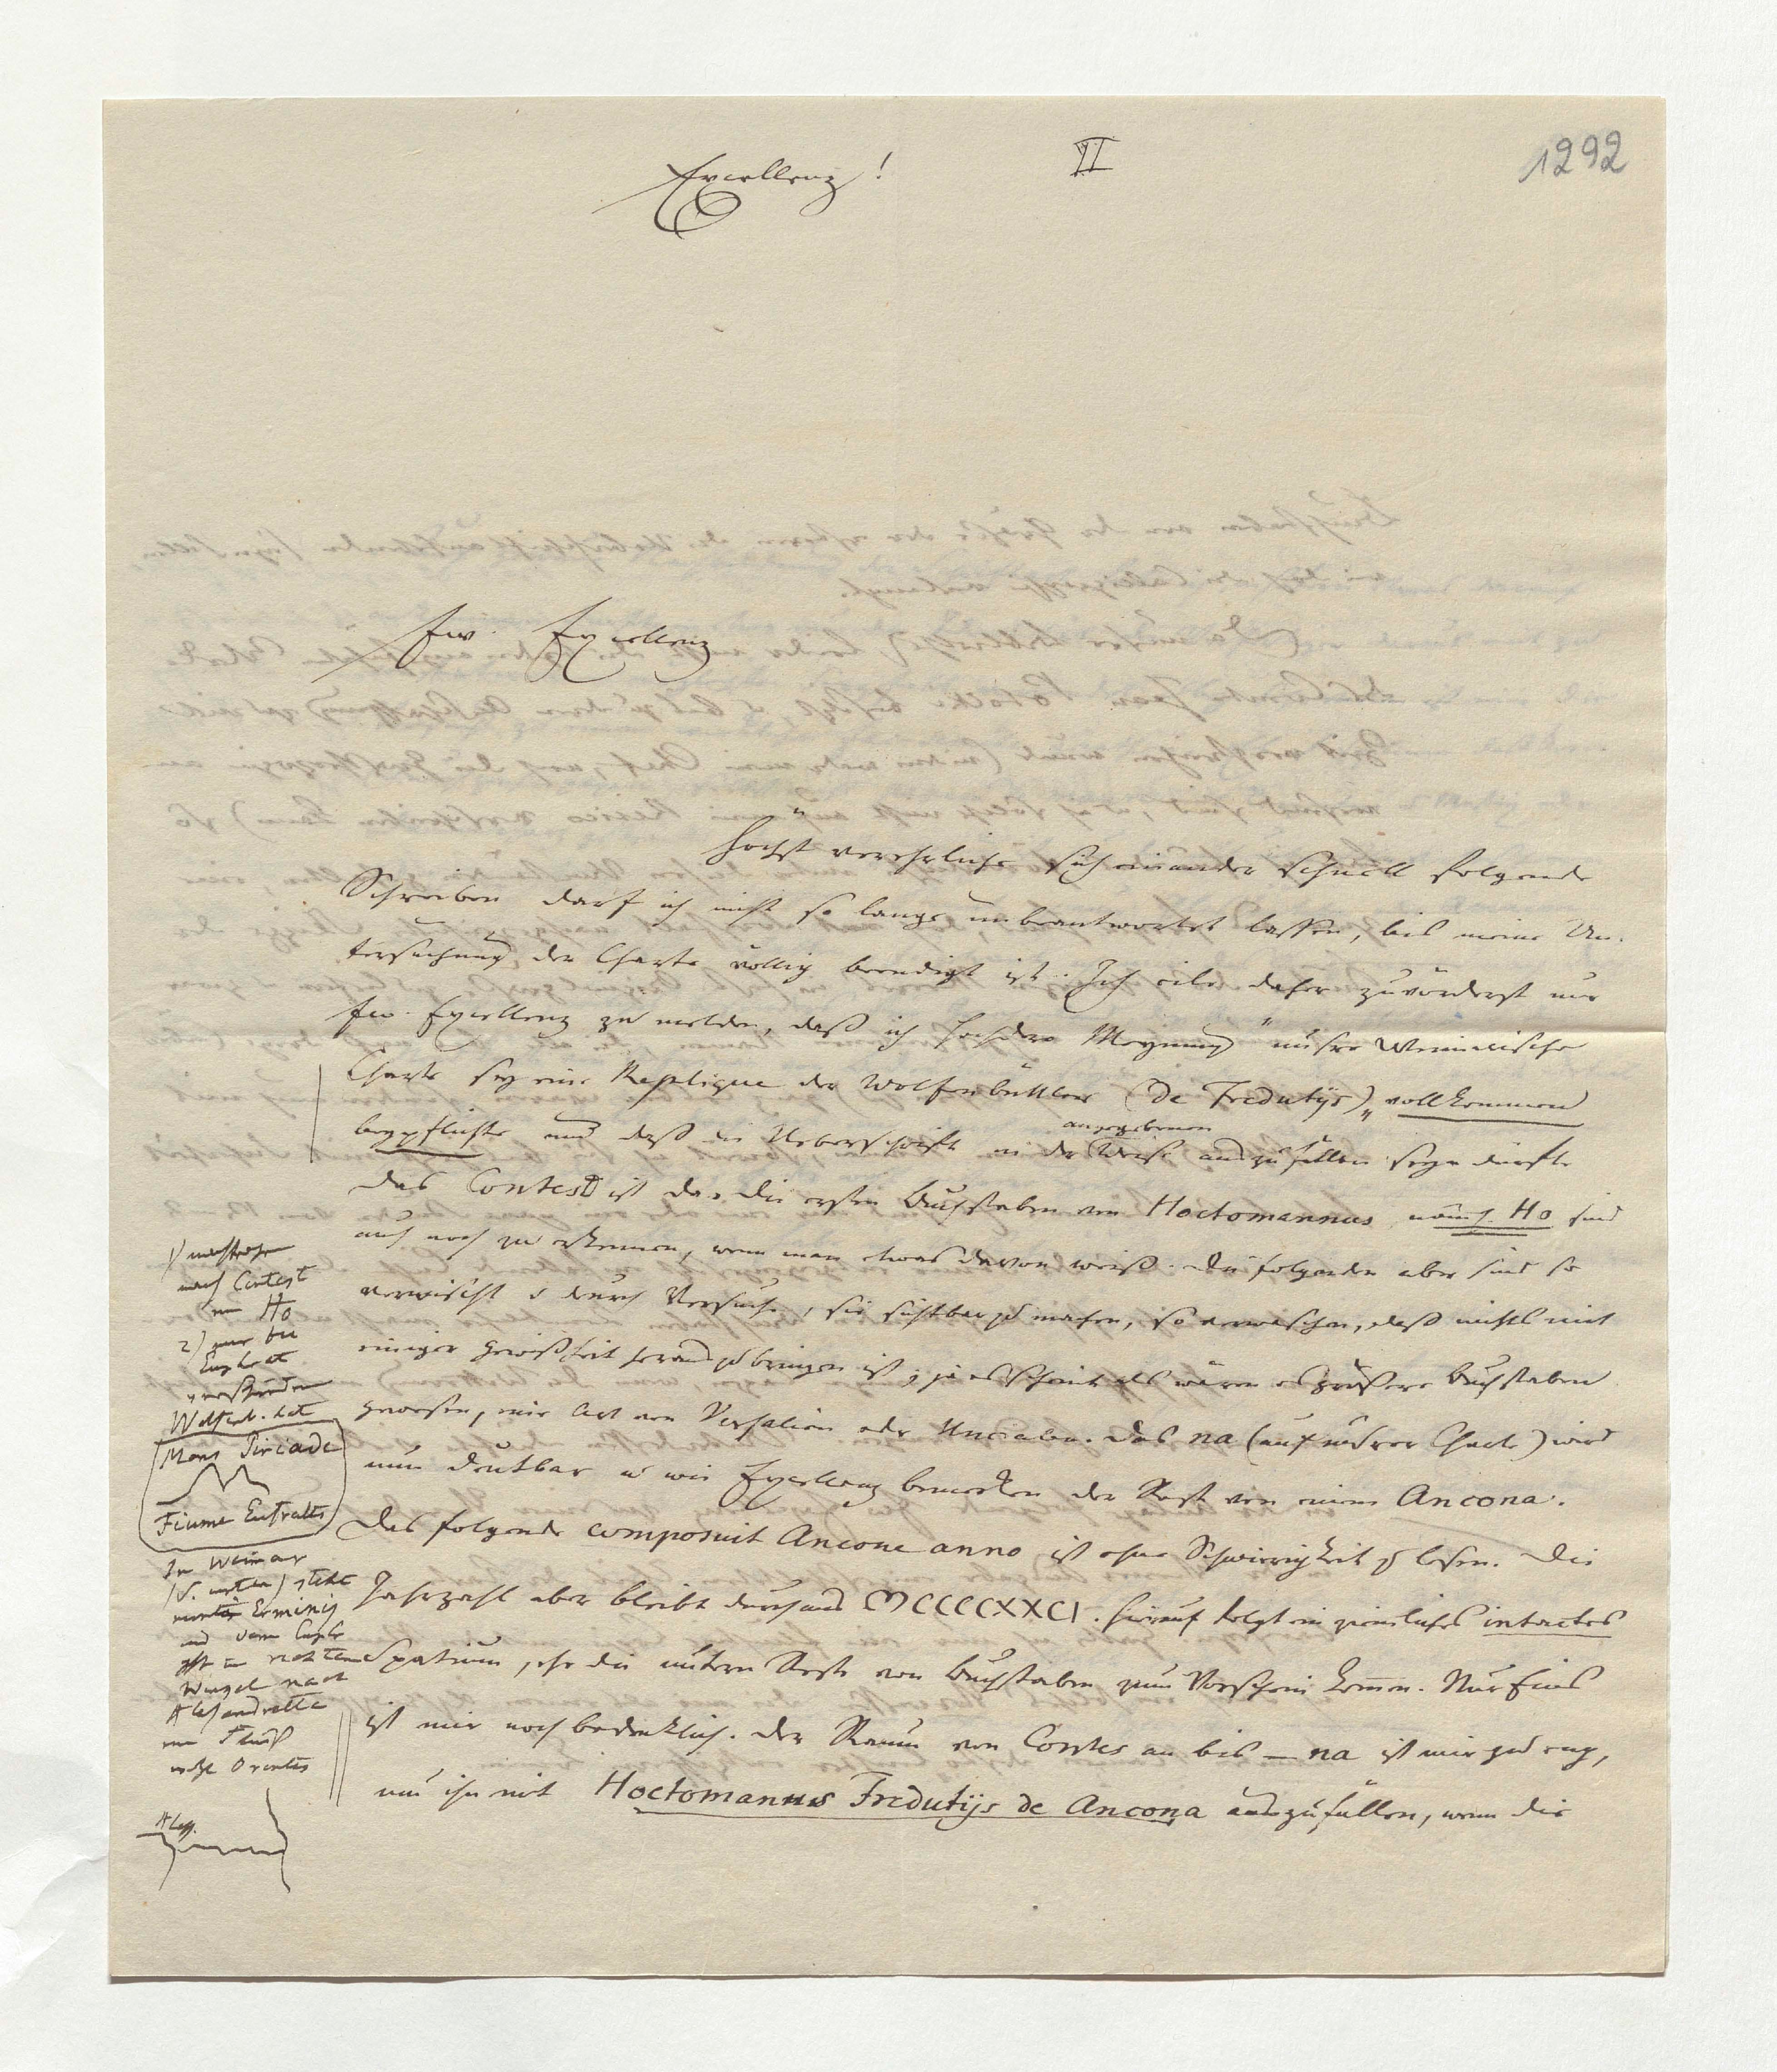 II
1292
Excellenz!
Ew. Excellenz
höchst verehrliche sich einander schnell folgende
Schreiben darf ich nicht so lange unbeantwortet lassen, bis meine Un-
tersuchung der Charte völlig beendigt ist. Ich eile daher zuvörderst nur
Ew. Excellenz zu melden, daß ich Hochdero Meynung "unsre Weimarische
Charte sey eine Replique der Wolfenbüttler (de Fredutijs)" vollkommen
beypflichte und daß die Ueberschrift in der angegebenen Weise auszufüllen seyn dürfte
Das Contes ist da. die ersten Buchstaben von Hoctomannus, näml. Ho sind
auch noch zu erkennen, wenn man etwas davon weiß. die folgenden aber sind so
verwischt & durch Versuche, sie sichtbar zu machen, so verwaschen, daß nichts mit
einiger Gewißheit herauszubringen ist; ja es scheint als wären es größere Buchstaben
gewesen, eine Art von Versalien oder Uncialen. Das na (auf unsrer Charte) wird
nun deutbar u wie Excellenz bemerken der Rest von einem Ancona.
Das folgende composuit Ancone anno ist ohne Schwierigkeit zu lesen. Die
Jahrzahl aber bleibt durchaus MCCCCXXCI. hierauf folgt ein ziemliches intactes
Spatium, ehe die untern Reste von Buchstaben zum Vorschein kommen. Nur Eins
ist mir noch bedenklich. der Raum von Contes an bis – na ist mir zu eng,
um ihn mit Hoctomannus Fredutijs de Ancona auszufüllen, wenn die
1)
nach Contest
nur Ho
2) nur bei
Euphrat
verschieden
Wolfenb. hat
Mons Tiriade
Fiume Eufrates
In Weimar
steht
Erminij
und vom
in rechten
Winkel nach
Alessandretta
ein Fluß
wohl Orontes
Aless.